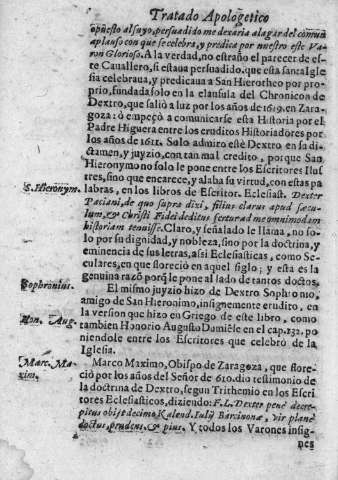 Tratado Apologetico
opuesto al suyo, persuadido me dexaria alagar del comun
aplauso con que se celebra, y predica por nuestro este Va-
ron Glorioso. A la verdad, no estraño el parecer de es-
tre Cauallero, si estaua persuadido, que esta santa Igle-
sia celebraua, y predicaua a San Hierotheo por pro-
prio, fundada solo en la clausula del Chronicon de
Dextro, que saliò a luz por los años de 1619. en Zara-
goza: ò empeçò a comunicarse esta Historia por el
Padre Higuera entre los eruditos Historiadores por
los años de 1611. Solo admiro estè Dextro en su di-
ctamen, y juyzio, con tan mal credito, porque San
Hieronymo no solo le pone entre los Escritores Ilus-
tres, sino que encarece, y alaba su virtud, con estas pa-
S. Hieronym.
labras, en los libros de Escritor. Ecclesiast. Dexter
Paciani, de quo supra dixi, filius clarus apud sæcu-
lum, & Christi Fidei deditus fertur ad me omnimodam
historiam tenuisse. Claro, y señalado le llama, no so-
lo por su dignidad, y nobleza, sino por la doctrina, y
eminencia de sus letras, assi Eclesiasticas, como Se-
culares, en que floreciò en aquel siglo; y esta es la
genuina razò porq̃ le pone al lado de tantos doctos.
Sophronius.
El mismo juyzio hizo de Dextro Sophronio,
amigo de San Hieronimo, insignemente erudito, en
la version que hizo en Griego de este libro, como
Hon. Aug.
tambien Honorio Augusto Dumiẽse en el cap. 132. po-
niendole entre los Escritores que celebrò de la
Iglesia.
Marc. Ma-
xim.
Marco Maximo, Obispo de Zaragoza, que flore-
ciò por los años del Señor de 610. dio testimonio de
la doctrina de Dextro, segun Trithemio en los Escri-
tores Eclesiasticos, diziendo: F. L. Dexter penè decre-
pitus obijt decimo Kalend. Iulij Barcinonæ, vir planè
doctus, prudens, & pius. Y todos los Varones insig-
nes